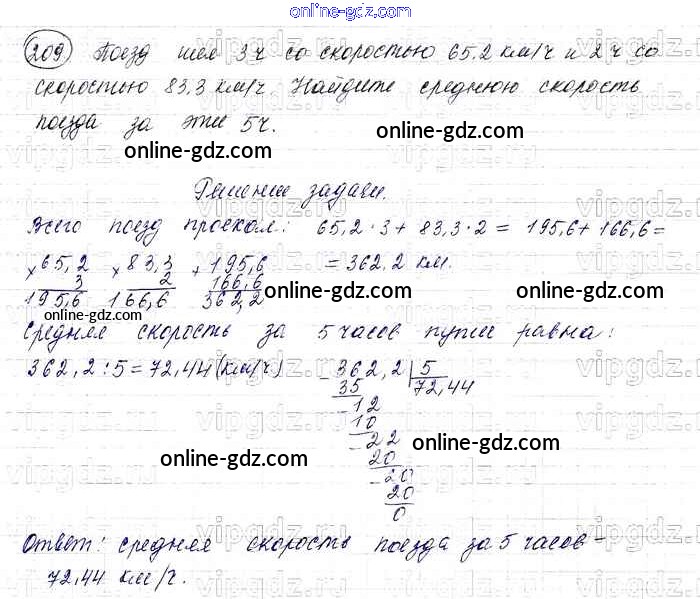 online-gdz.com
209 Поезд шел 3 ч со скоростью 65,2 км/ч и 2 ч со
скоростью 83,3 км/ч. Найдите среднюю скорость
поезда за эти 5 ч.
online-gdz.com
online-gdz.com
Решение задачи.
Всего поезд проехал: 65,2 · 3 + 83,3 · 2 = 195,6 + 166,6 =
= 362,2 км.
× 65,2 × 83,3 + 195,6
3 2 166,6
195,6 166,6 362,2
online-gdz.com
online-gdz.com
online-gdz.com
Средняя скорость за 5 часов пути равна:
362,2 : 5 = 72,44 (км/ч)
- 362,2 | 5
35 72,44
- 12
10
- 22
20
- 20
20
0
online-gdz.com
online-gdz.com
online-gdz.com
Ответ: средняя скорость поезда за 5 часов –
72,44 км/ч.
vipgdz.ru